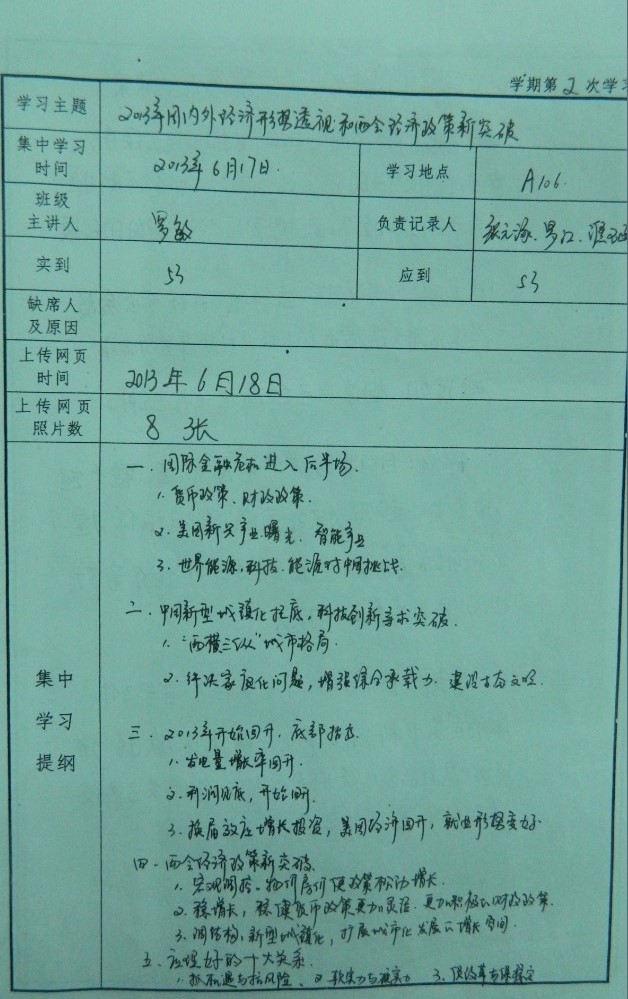 学期第2次学习
学习主题 2013年国内外经济形势透视和两会经济政策新突破
集中学习时间 2013年6月17日. 学习地点 A106.
班级主讲人 罗敏 负责记录人
实到 53 应到 53
缺席人及原因
上传网页时间 2013年6月18日
上传网页照片数 8 张
集中学习提纲
一.国际金融危机进入后半场.
1.货币政策、财政政策.
2.美国新兴产业曙光.智能产业
3.世界能源,科技.能源对中国挑战.
二.中国新型城镇化托底,科技创新寻求突破.
1."两横三纵"城市格局.
2. 问题,增强综合承载力.建设生态文明.
三.2013年开始回升.底部抬高.
1.发电量增长率回升.
2.利润见底,开始回升.
3.换届效应增长投资,美国经济回升,就业形势变好.
四.两会经济政策新突破.
1.宏观调控.物价房价使政策松动增长.
2.稳增长,稳健货币政策更加灵活.更加积极的财政政策.
3.调结构:新型城镇化,扩展城市化发展的增长空间.
五.处理好的十大关系
1.抓机遇与抗风险. 2.软实力与硬实力 3.促改革与保稳定